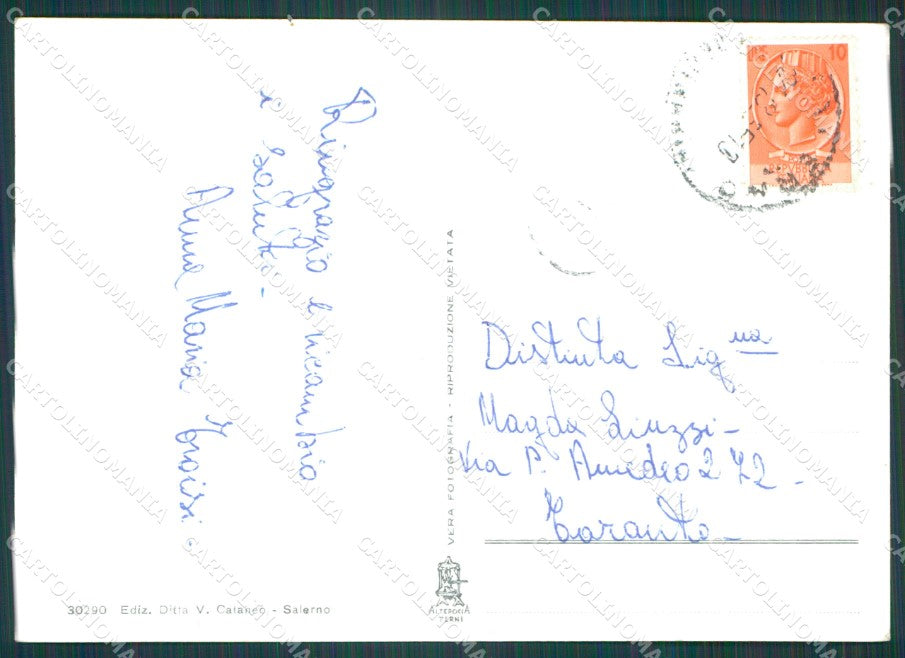 Ringrazio e ricambio
i saluti -
Anna Maria Troisi -
VERA FOTOGRAFIA - RIPRODUZIONE VIETATA
10
Distinta Sig.na
Magda Liuzzi -
Via P. Amedeo 272 -
Taranto -
30290 Ediz. Ditta V. Cataneo - Salerno
ALTEROCCA
TERNI
CARTOLINOMANIA